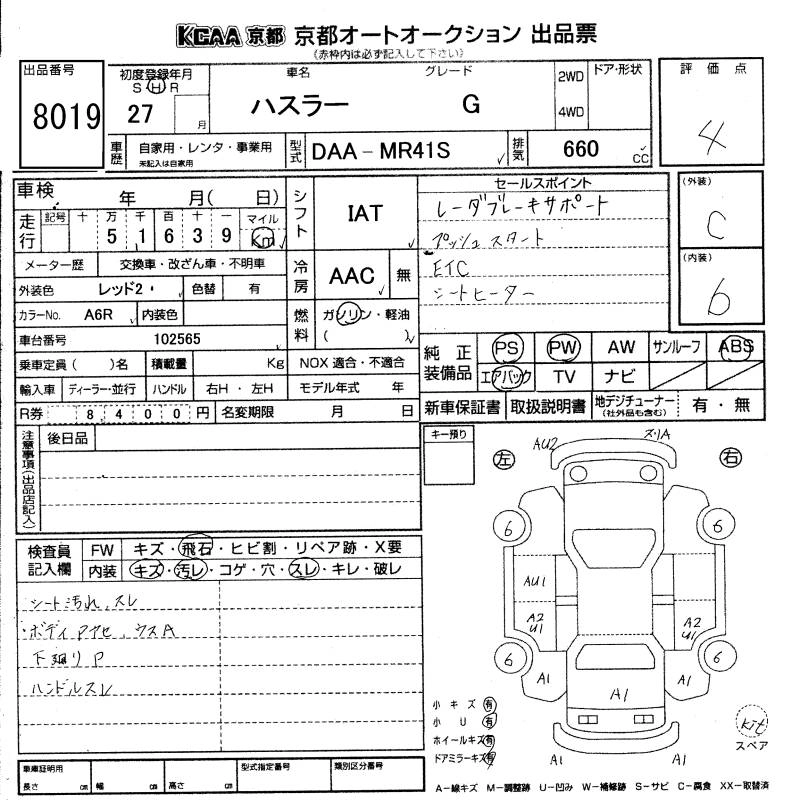 KCAA 京都 京都オートオークション 出品票
(赤枠内は必ず記入して下さい)
出品番号
8019
初度登録年月
S H R
27
月
車名
ハスラー
グレード
G
2WD
4WD
ドア・形状
評価点
4
車歴
自家用・レンタ・事業用
未記入は自家用
型式
DAA-MR41S
排気
660
CC
車検
年 月( 日)
シフト
IAT
セールスポイント
レーダブレーキサポート
プッシュスタート
ETC
シートヒーター
(外装)
C
(内装)
b
走行
記号
十 万 千 百 十 一
5 1 6 3 9
マイル
Km
メーター歴
交換車・改ざん車・不明車
冷房
AAC
無
外装色
レッド2
色替
有
カラーNo.
A6R
内装色
燃料
ガソリン・軽油
( )
車台番号
102565
乗車定員( )名
積載量
Kg
NOX 適合・不適合
輸入車
ディーラー・並行
ハンドル
右H・左H
モデル年式 年
R券
8,400円
名変期限
月 日
純正装備品
PS
PW
AW
サンルーフ
ABS
エアバック
TV
ナビ
新車保証書
取扱説明書
地デジチューナー
(社外品も含む)
有・無
注意事項(出品店記入)
後日品
キー預り
左
右
AU2
ス.リA
6
6
AU1
A2
U1
A2
U1
6
6
A1
A1
A1
A1
A1
検査員記入欄
FW
キズ・飛石・ヒビ割・リペア跡・X要
内装
キズ・汚レ・コゲ・穴・スレ・キレ・破レ
シート汚れ、スレ
ボディアセ、ウスA
下廻りP
ハンドルスレ
小キズ 有
小U 有
ホイールキズ 有
ドアミラーキズ 有
kit
スペア
車庫証明用
長さ cm
幅 cm
高さ cm
型式指定番号
類別区分番号
A-線キズ M-調整跡 U-凹み W-補修跡 S-サビ C-腐食 XX-取替済